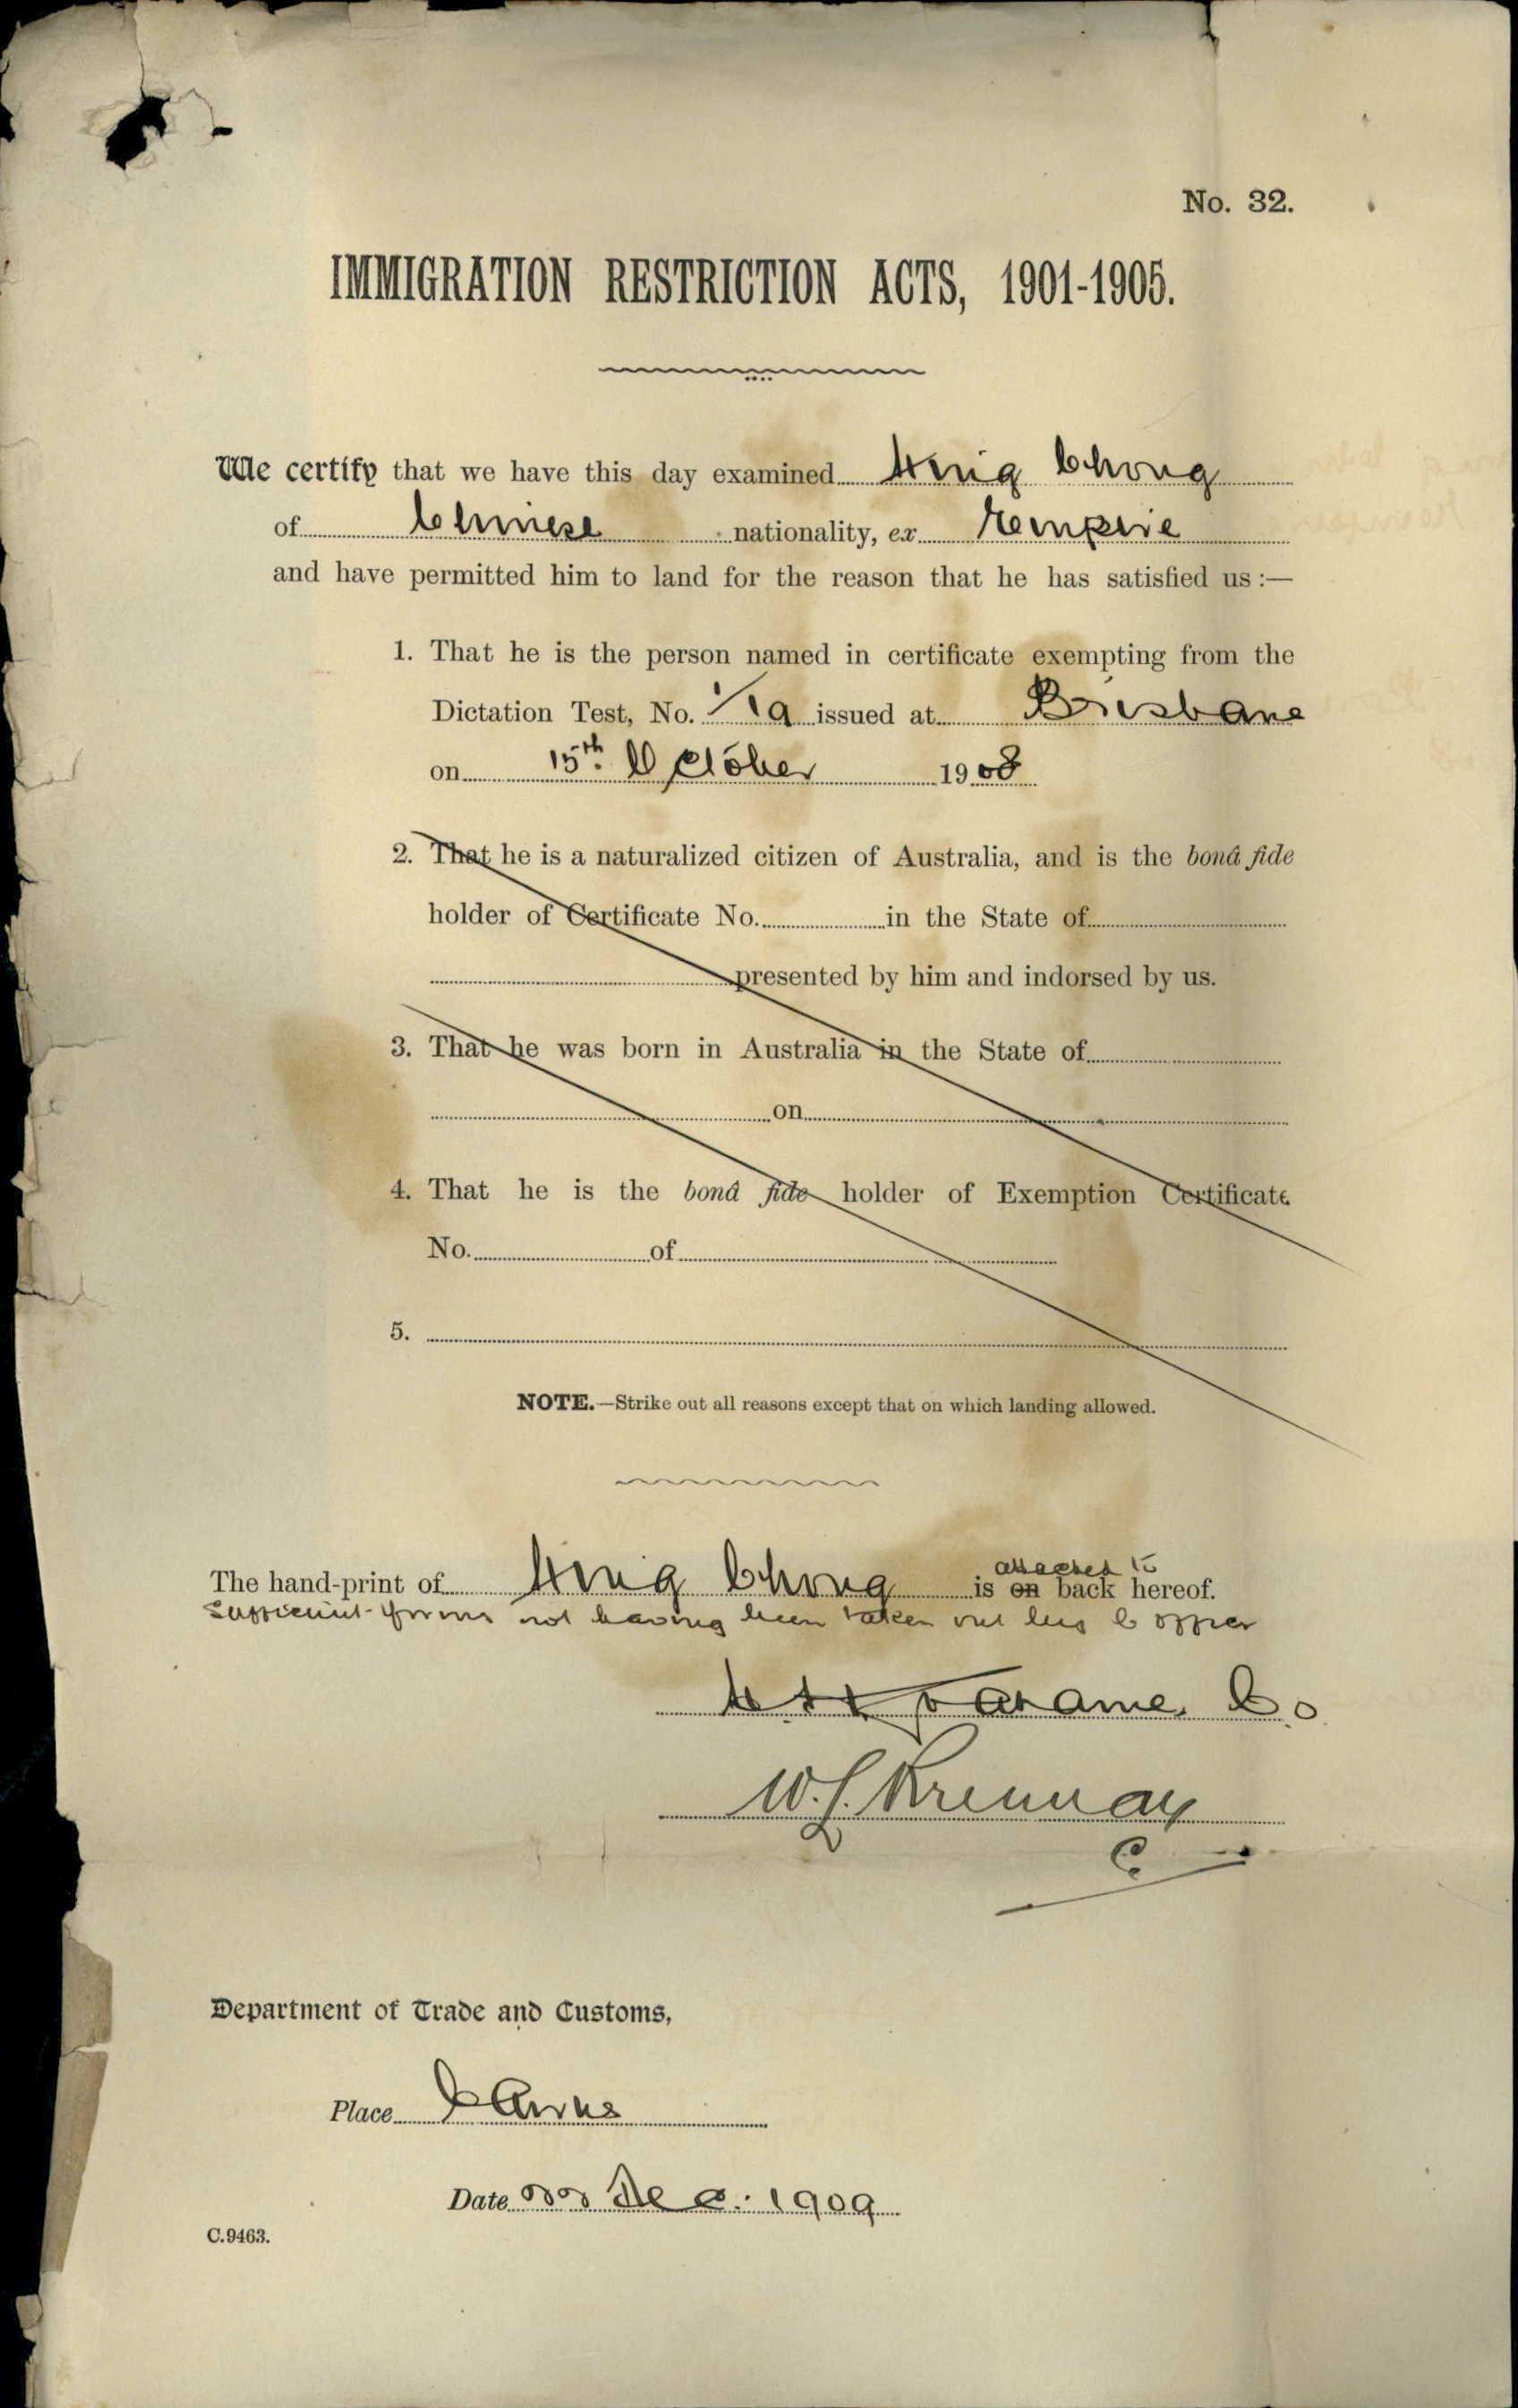 No. 32.
IMMIGRATION RESTRICTION ACTS, 1901-1905.
We certify that we have this day examined Hing Chong
of Chinese nationality, ex Empire
and have permitted him to land for the reason that he has satisfied us :—
1. That he is the person named in certificate exempting from the
Dictation Test, No. 1/19 issued at Brisbane
on 15th. October 1908
2. That he is a naturalized citizen of Australia, and is the bonâ fide
holder of Certificate No. in the State of
presented by him and indorsed by us.
3. That he was born in Australia in the State of
on
4. That he is the bonâ fide holder of Exemption Certificate
No. of
5.
NOTE.—Strike out all reasons except that on which landing allowed.
attached to
The hand-print of Hing Chong is on back hereof.
Sufficient forms not having been taken out by C Officer
C.O
W.
C.
Department of Trade and Customs,
Place Cairns
Date Dec. 1909
C.9463.